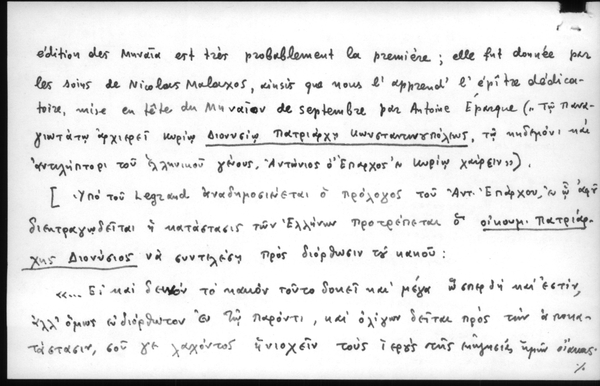 édition des Μηναῖα est très probablement la première ; elle fut donnée par
les soins de Nicolas Malaxos, ainsi que nous l'apprend l'épître dédica-
toire, mise en tête du Μηναῖον de septembre par Antoine Éparque („Τῷ Πανα-
γιωτάτῳ ἀρχιερεῖ κυρίῳ Διονυσίῳ Πατριάρχῃ Κωνσταντινουπόλεως, τῷ κηδεμόνι καὶ
ἀντιλήπτορι τοῦ ἑλληνικοῦ γένους, Ἀντώνιος ὁ Ἔπαρχος ἐν Κυρίῳ χαίρειν»).
[ Ὑπὸ τοῦ Legrand ἀναδημοσιεύεται ὁ πρόλογος τοῦ Ἀντ. Ἐπάρχου, ἐν ᾧ ἀφ' οὗ
διεκτραγῳδεῖται ἡ κατάστασις τῶν Ἑλλήνων προτρέπεται ὁ οἰκουμ. Πατριάρ-
χης Διονύσιος νὰ συντελέσῃ πρὸς διόρθωσιν τοῦ κακοῦ :
«... Εἰ καὶ δεινὸν τὸ κακὸν τοῦτο δοκεῖ καὶ μέγα ὥσπερ δὴ καὶ ἐστίν,
ἀλλ' ὅμως εὐδιόρθωτον ἐν τῷ παρόντι, καὶ ὀλίγων δεῖται πρὸς τὴν ἀποκα-
τάστασιν, σοῦ γε λαχόντος ἡνιοχεῖν τοὺς ἱεροὺς τῆς ἐκκλησίας ἡμῶν οἴακας·
%